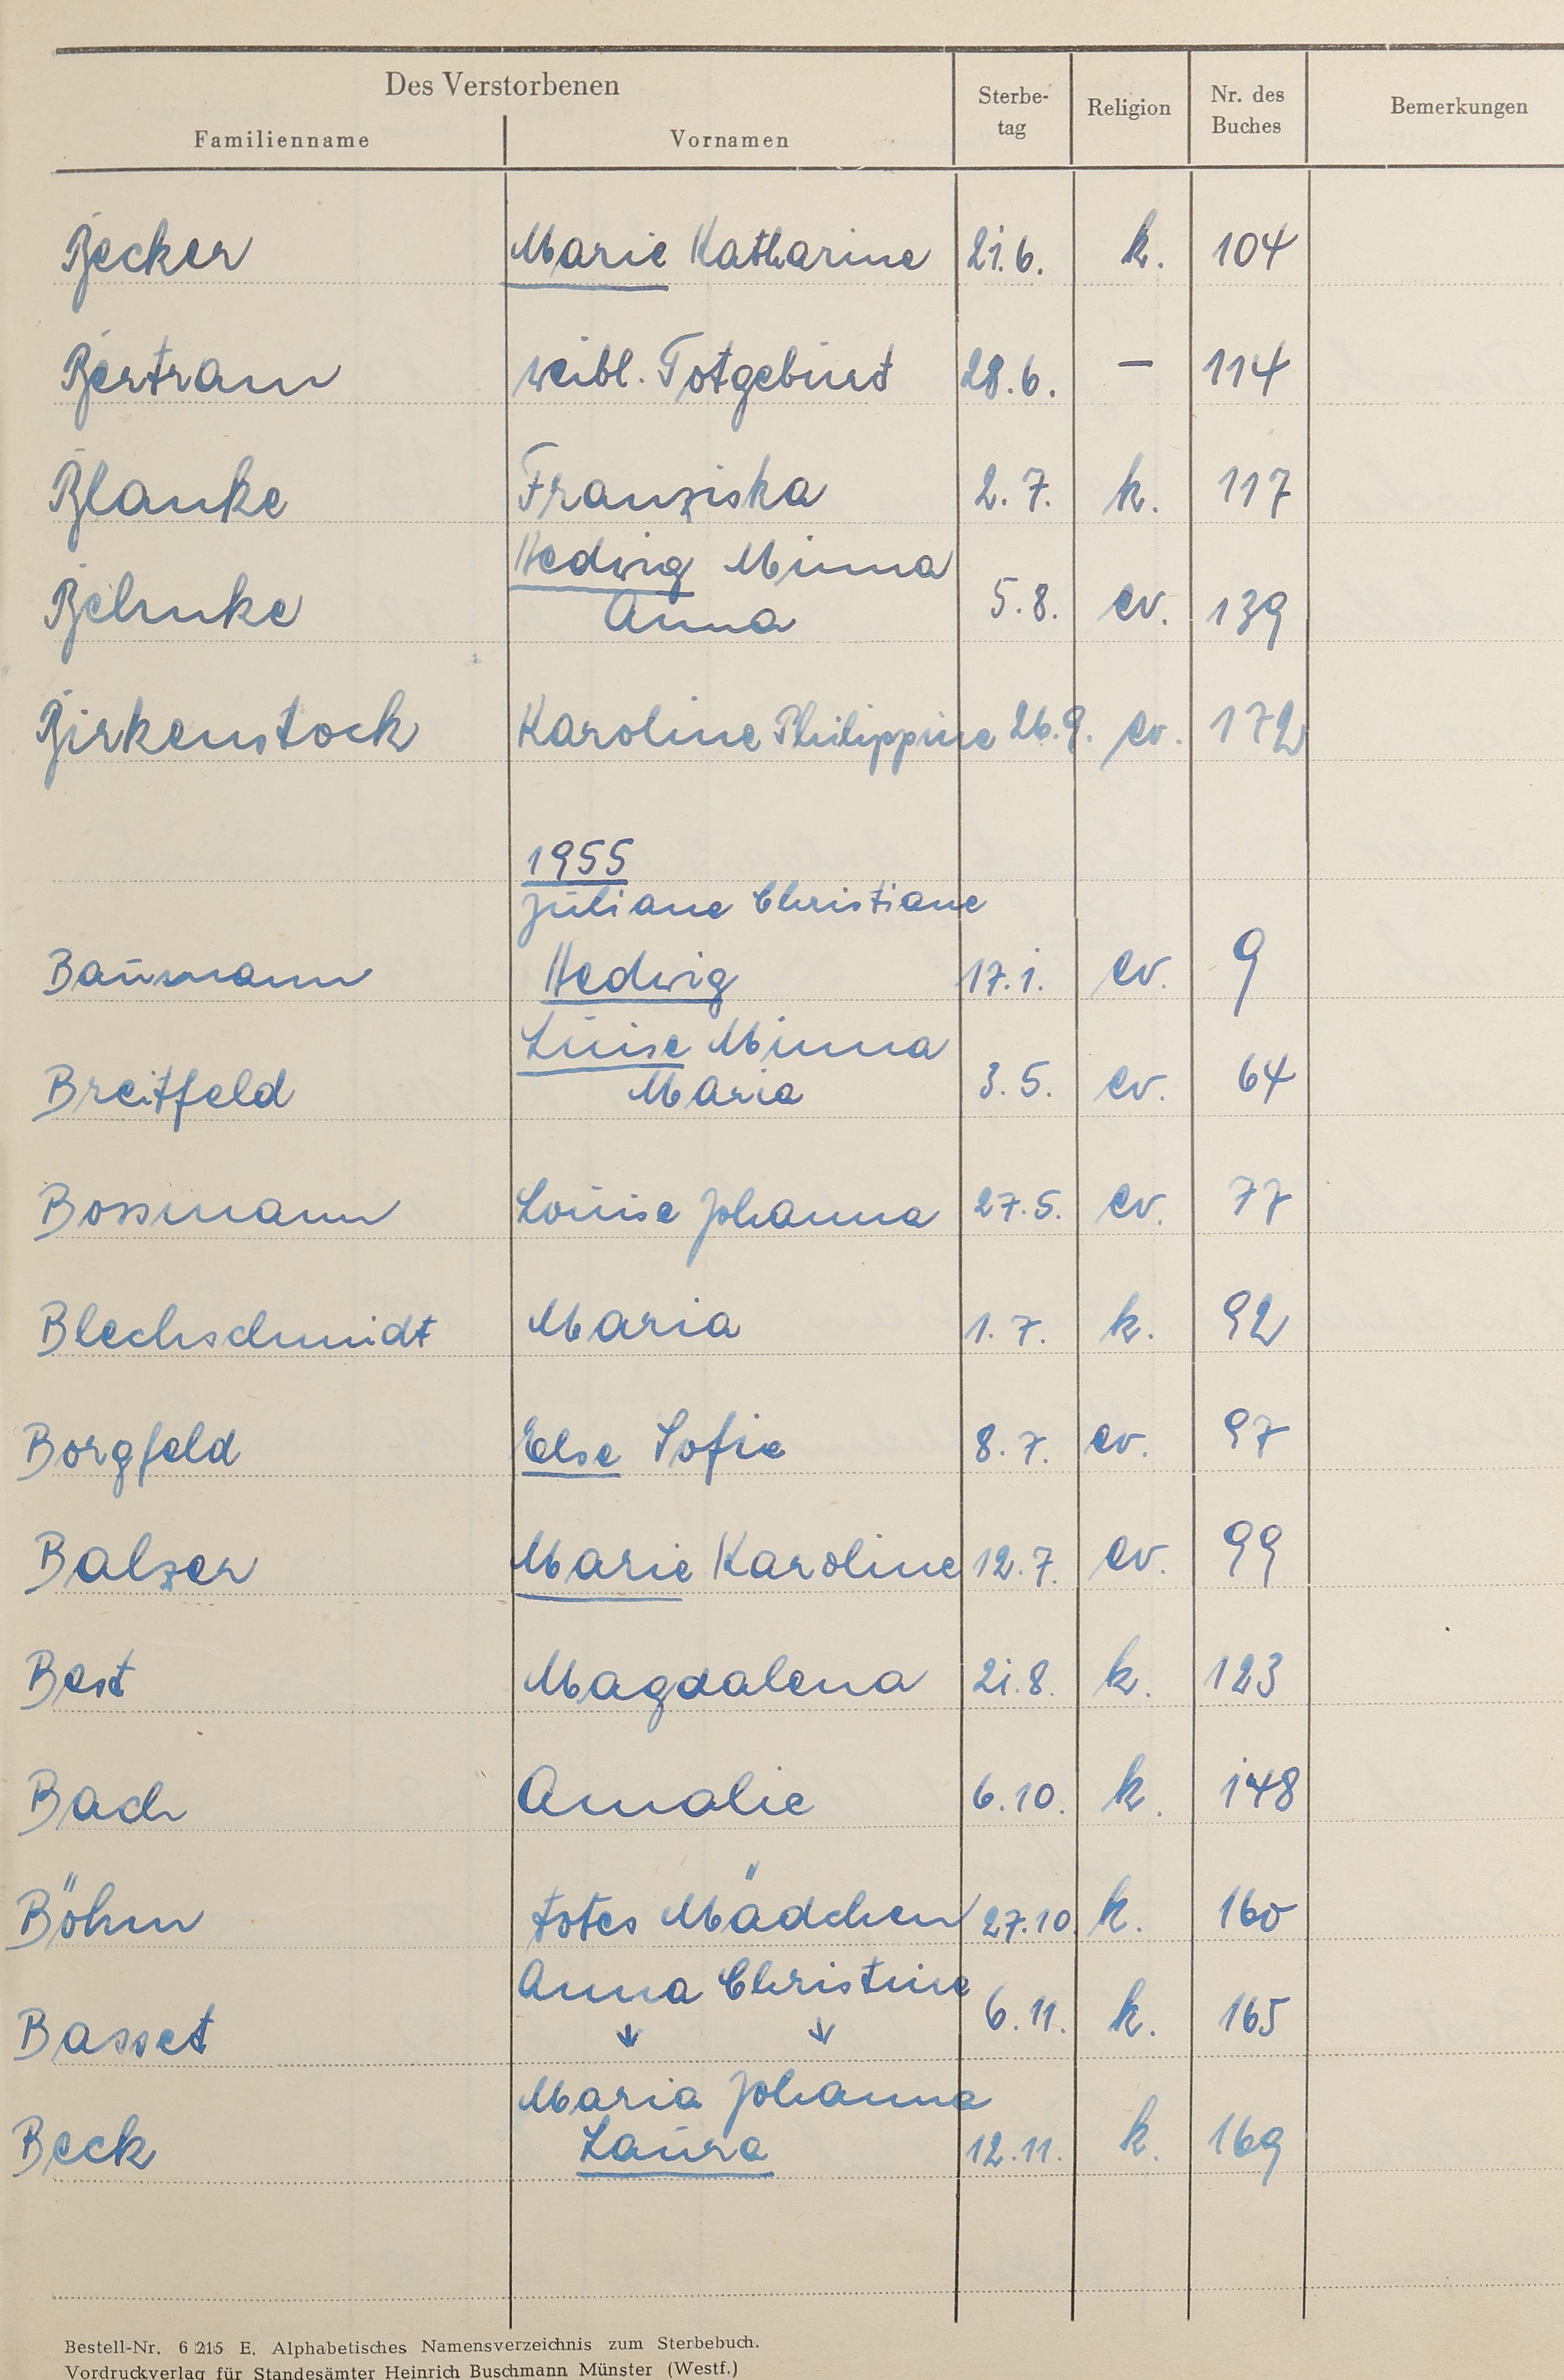 Des Verstorbenen
Familienname Vornamen Sterbe-tag Religion Nr. des Buches Bemerkungen
Becker Marie Katharine 21.6. k. 104
Bertram weibl. Totgeburt 28.6. — 114
Blanke Franziska 2.7. k. 117
Hedwig Minna
Behnke Anna 5.8. ev. 139
Birkenstock Karoline Philippine 26.9. ev. 172
1955
Juliane Christiane
Baumann Hedwig 17.1. ev. 9
Luise Minna
Breitfeld Maria 3.5. ev. 64
Bossmann Louise Johanna 27.5. ev. 77
Blechschmidt Maria 1.7. k. 92
Borgfeld Else Sofie 8.7. ev. 97
Balzer Marie Karoline 12.7. ev. 99
Best Magdalena 21.8. k. 123
Bach Amalie 6.10. k. 148
Böhm totes Mädchen 27.10. k. 160
Anna Christine
Basset ↓ ↓ 6.11. k. 165
Maria Johanna
Beck Laura 12.11. k. 169
Bestell-Nr. 6 215 E. Alphabetisches Namensverzeichnis zum Sterbebuch.
Vordruckverlag für Standesämter Heinrich Buschmann Münster (Westf.)